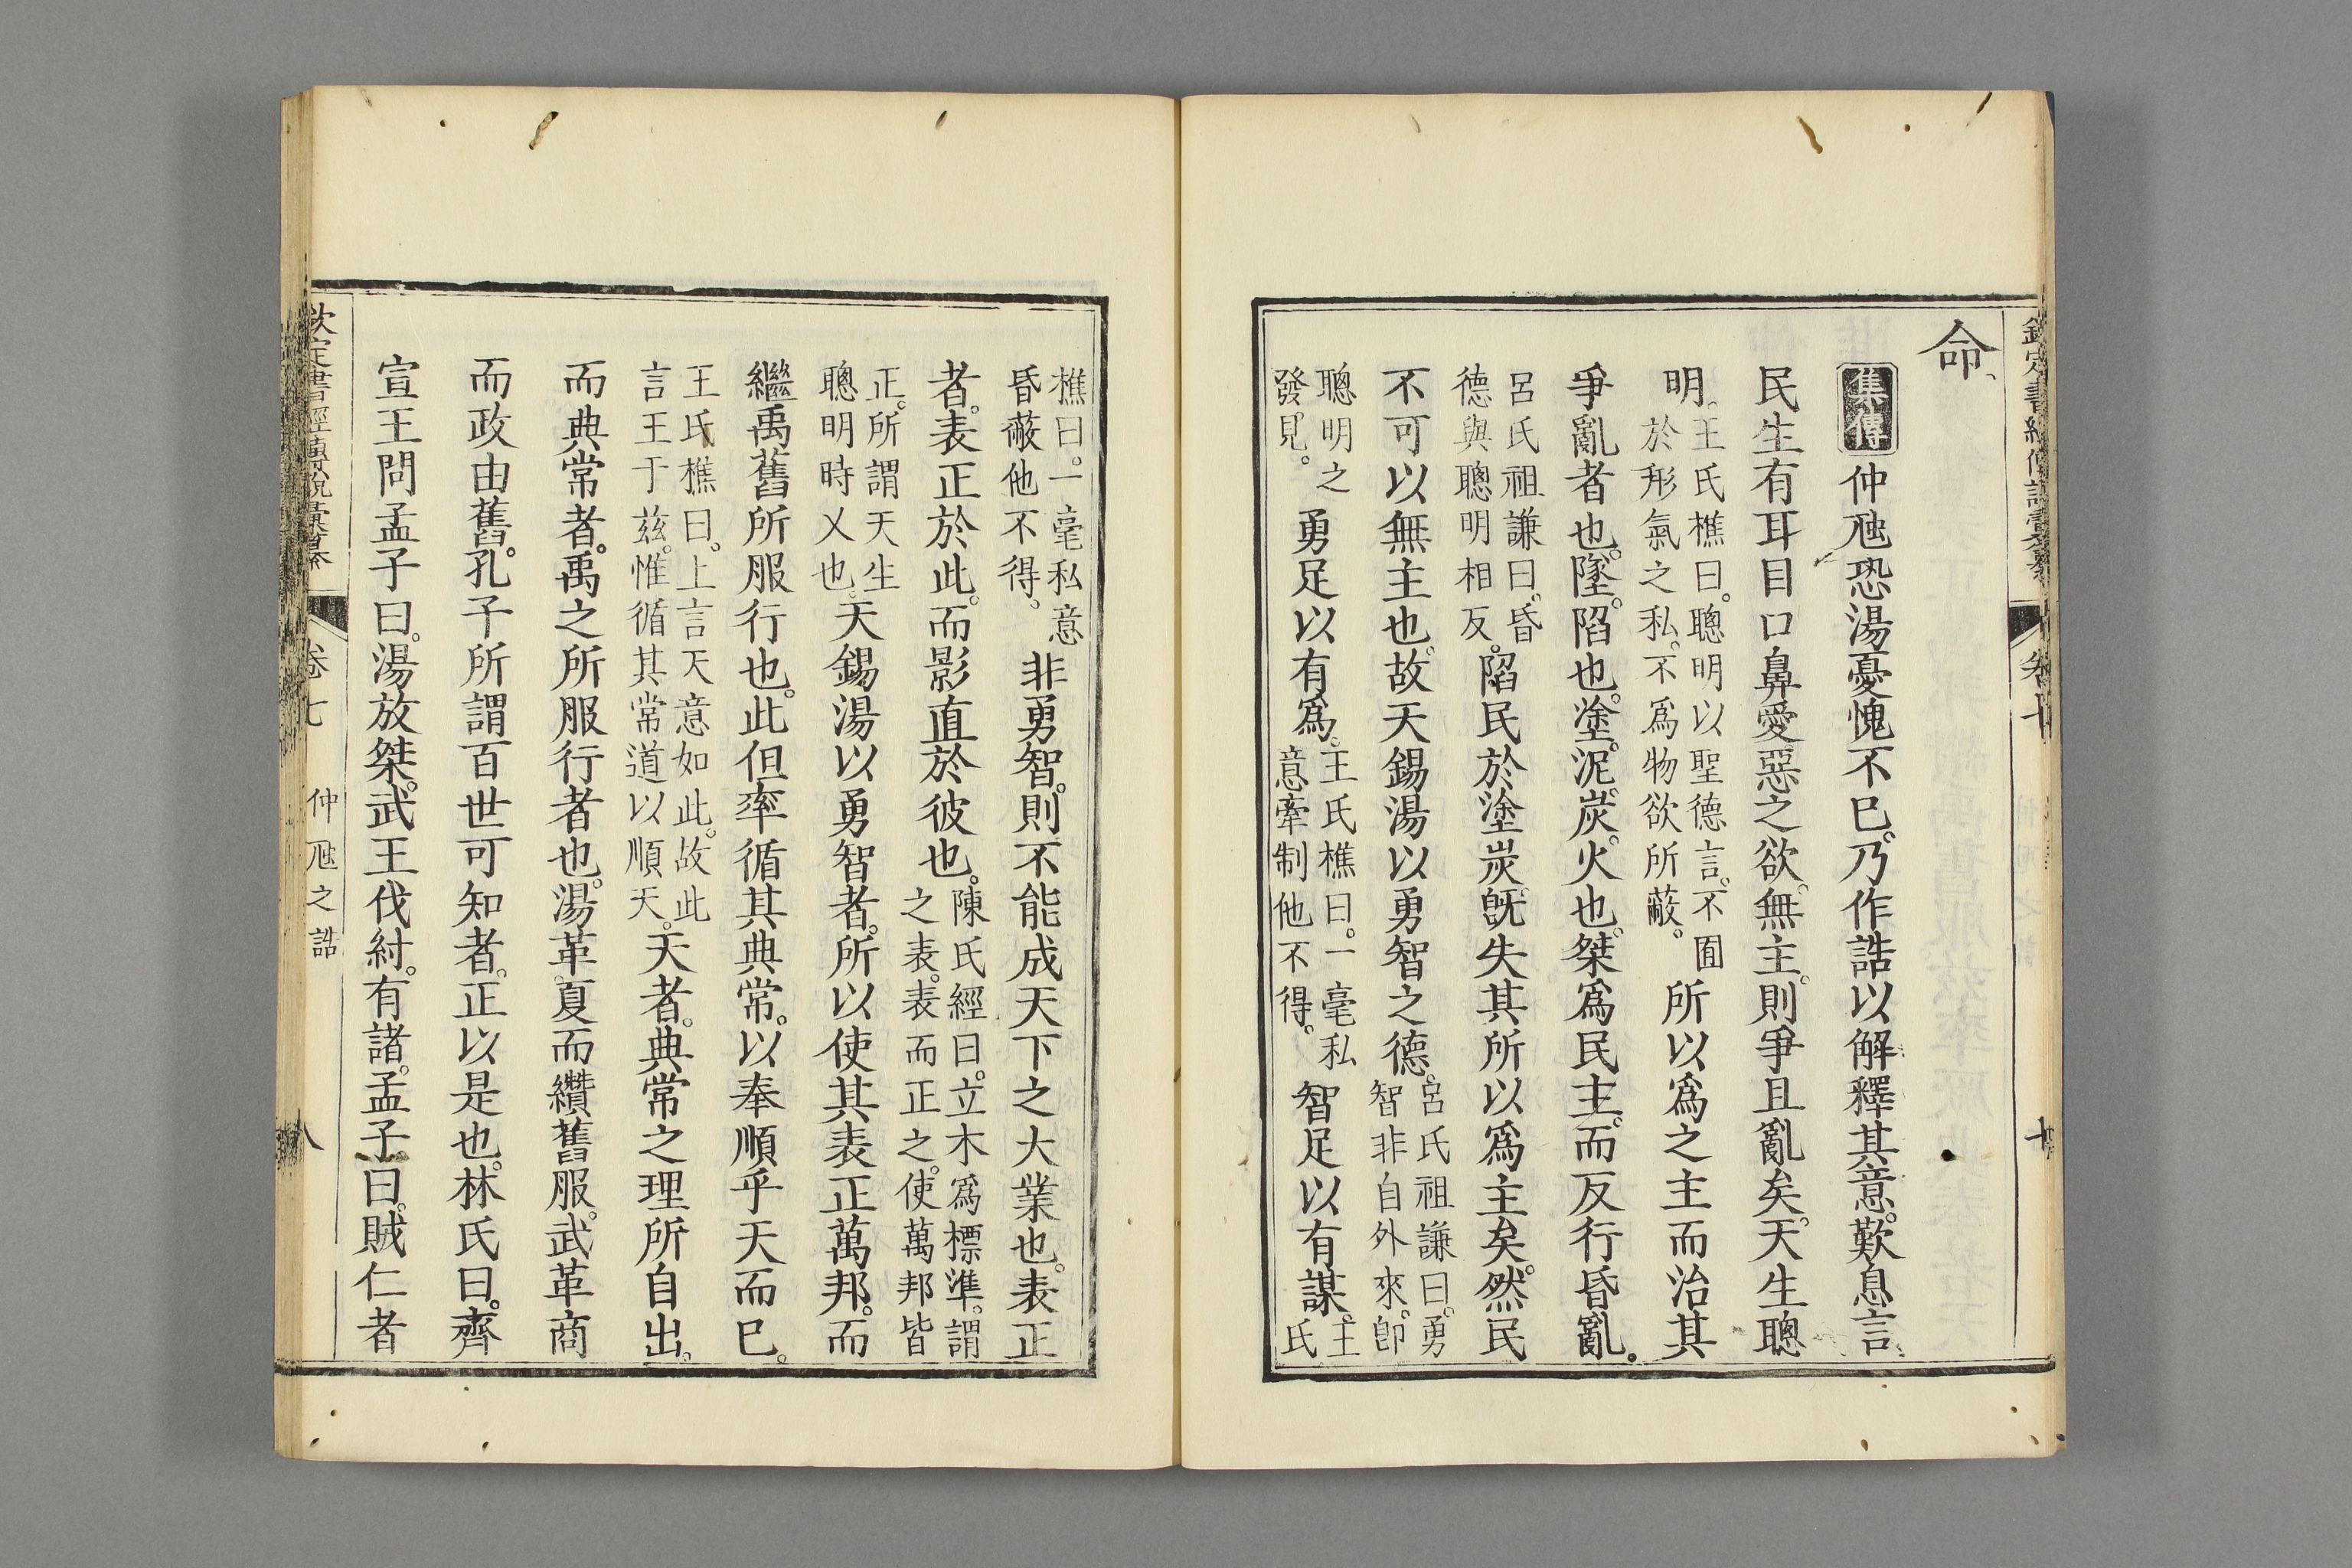 命
集傳仲虺恐湯憂愧不已。乃作誥以解釋其意。歎息言
民生有耳目口鼻愛惡之欲。無主。則爭且亂矣。天生聰
明。王氏樵曰。聰明以聖德言。不囿於形氣之私。不爲物欲所蔽。所以爲之主而治其
爭亂者也。墜。陷也。塗。泥。炭。火也。桀爲民主。而反行昏亂。
呂氏祖謙曰。昏德與聰明相反。陷民於塗炭。旣失其所以爲主矣。然民
不可以無主也。故天錫湯以勇智之德。呂氏祖謙曰。勇智非自外來。卽
聰明之發見。勇足以有爲。王氏樵曰。一毫私意牽制他不得。智足以有謀。王氏
樵曰。一毫私意昏蔽他不得。非勇智。則不能成天下之大業也。表正
者。表正於此。而影直於彼也。陳氏經曰。立木爲標準。謂之表。表而正之。使萬邦皆
正。所謂天生聰明時乂也。天錫湯以勇智者。所以使其表正萬邦。而
繼禹舊所服行也。此但率循其典常。以奉順乎天而已。
王氏樵曰。上言天意如此。故此言王于茲。惟循其常道以順天。天者。典常之理所自出。
而典常者。禹之所服行者也。湯革夏而纘舊服。武革商
而政由舊。孔子所謂百世可知者。正以是也。林氏曰。齊
宣王問孟子曰。湯放桀。武王伐紂。有諸。孟子曰。賊仁者
欽定書經傳說彙纂 卷七 仲虺之誥 八